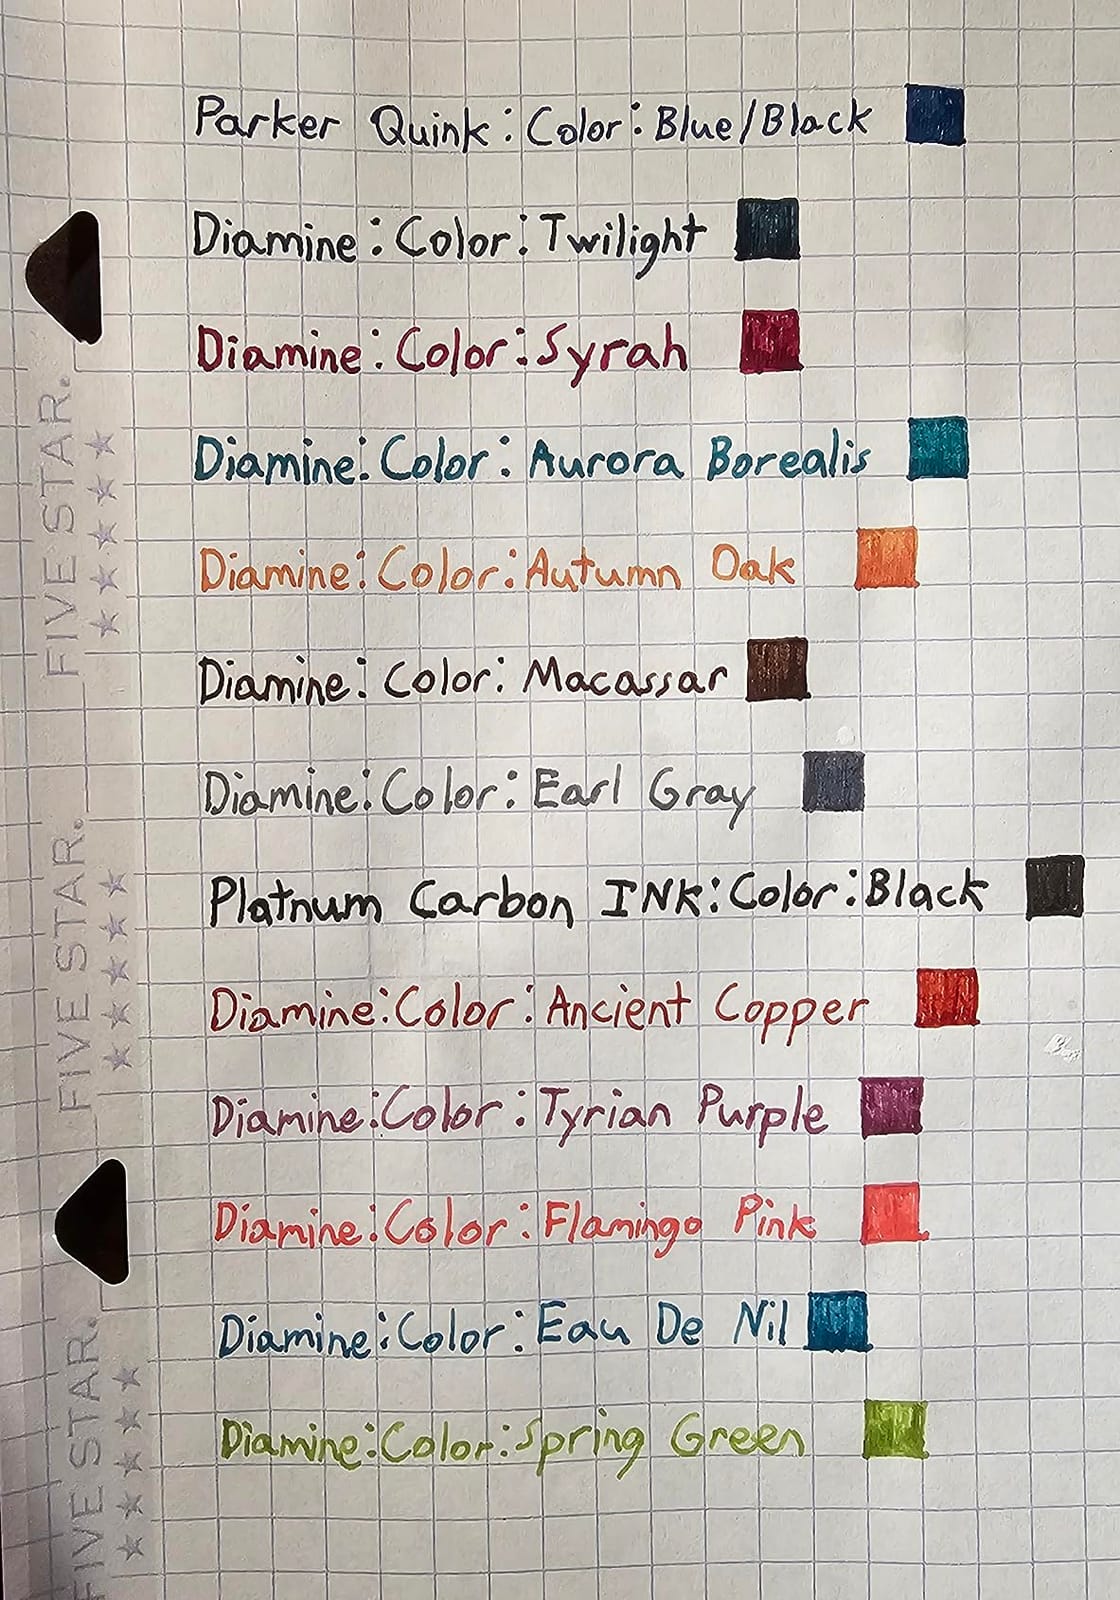 Parker Quink: Color: Blue/Black
Diamine: Color: Twilight
Diamine: Color: Syrah
Diamine: Color: Aurora Borealis
Diamine: Color: Autumn Oak
Diamine: Color: Macassar
Diamine: Color: Earl Gray
Platnum Carbon INK: Color: Black
Diamine: Color: Ancient Copper
Diamine: Color: Tyrian Purple
Diamine: Color: Flamingo Pink
Diamine: Color: Eau De Nil
Diamine: Color: Spring Green
FIVE STAR.
FIVE STAR.
FIVE STAR.